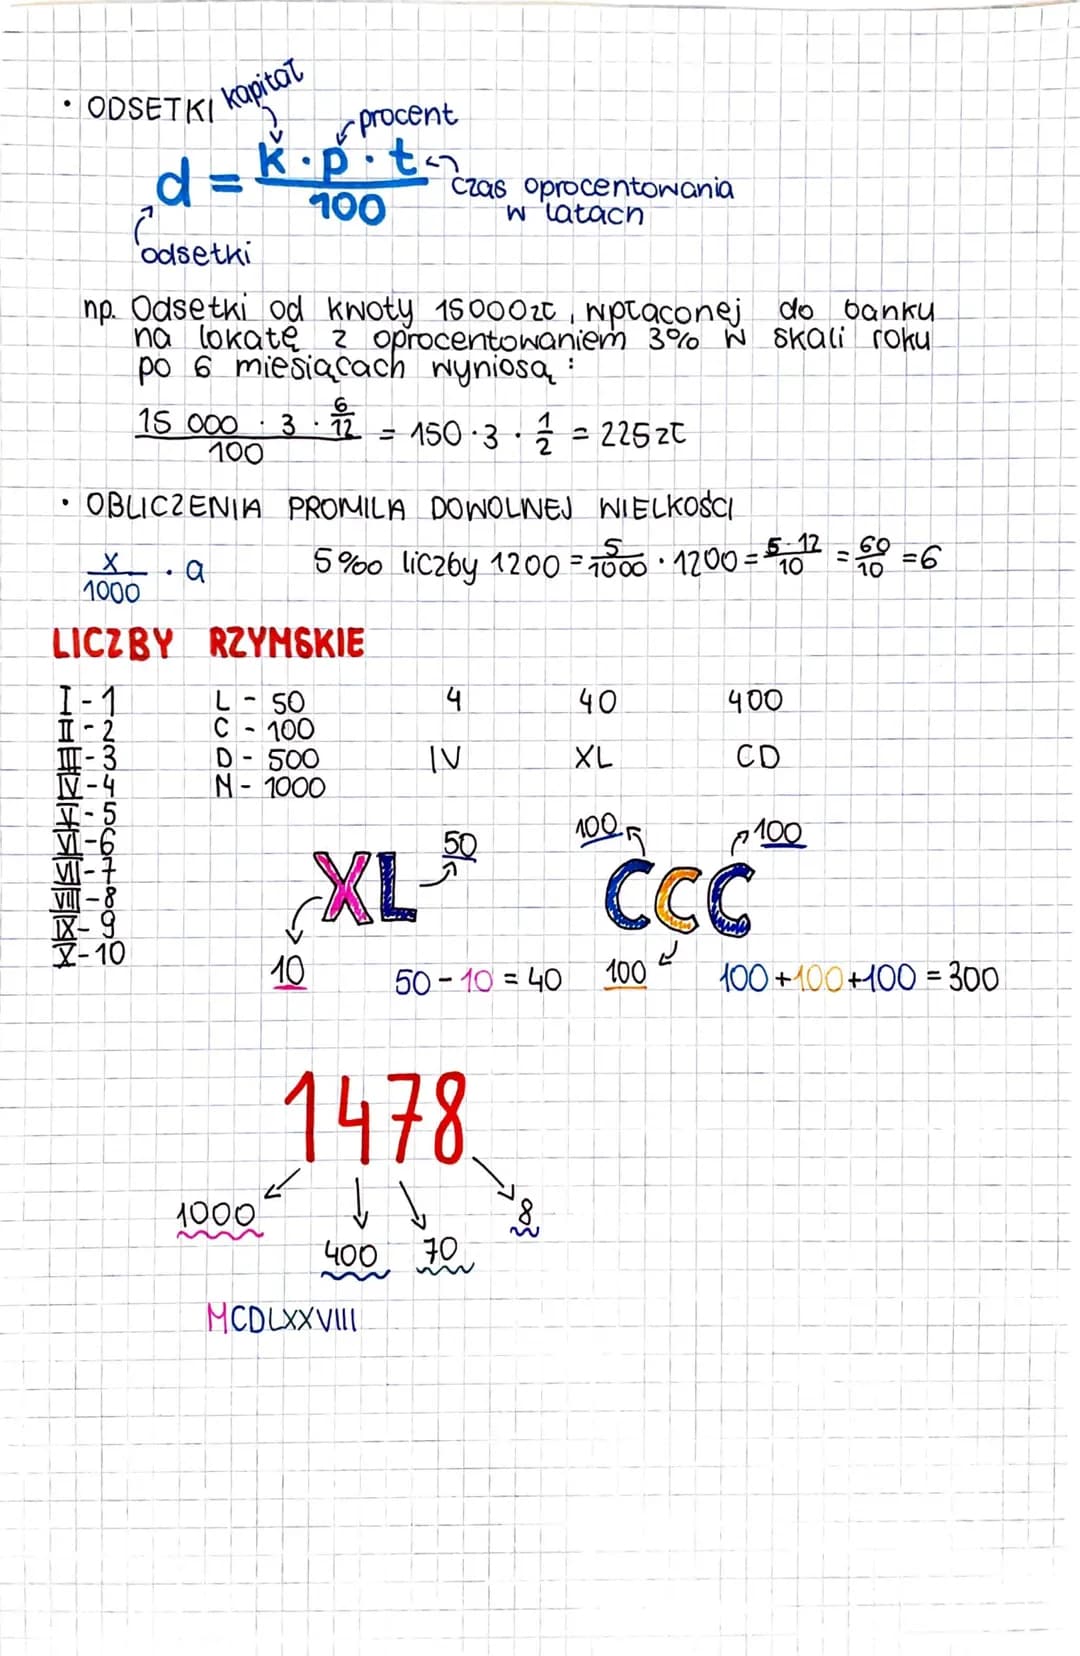 • ODSETKI kapitał
procent
d = k · p · t / 100
czas oprocentowania
w latach
odsetki
np. Odsetki od kwoty 15000zł, wpłaconej do banku
na lokatę z oprocentowaniem 3% w skali roku
po 6 miesiącach wyniosą :
15 000 · 3 · 6/12 / 100 = 150 · 3 · 1/2 = 225zł
• OBLICZENIA PROMILA DOWOLNEJ WIELKOŚCI
x/1000 · a 5‰ liczby 1200 = 5/1000 · 1200 = 5·12/10 = 60/10 = 6
LICZBY RZYMSKIE
I - 1 L - 50 4 40 400
II - 2 C - 100
III - 3 D - 500 IV XL CD
IV - 4 M - 1000
V - 5
VI - 6
VII - 7
VIII - 8
IX - 9
X - 10
50 100 100
XL CCC
10 50 - 10 = 40 100 100 + 100 + 100 = 300
1478
1000 400 70 8
MCDLXXVIII